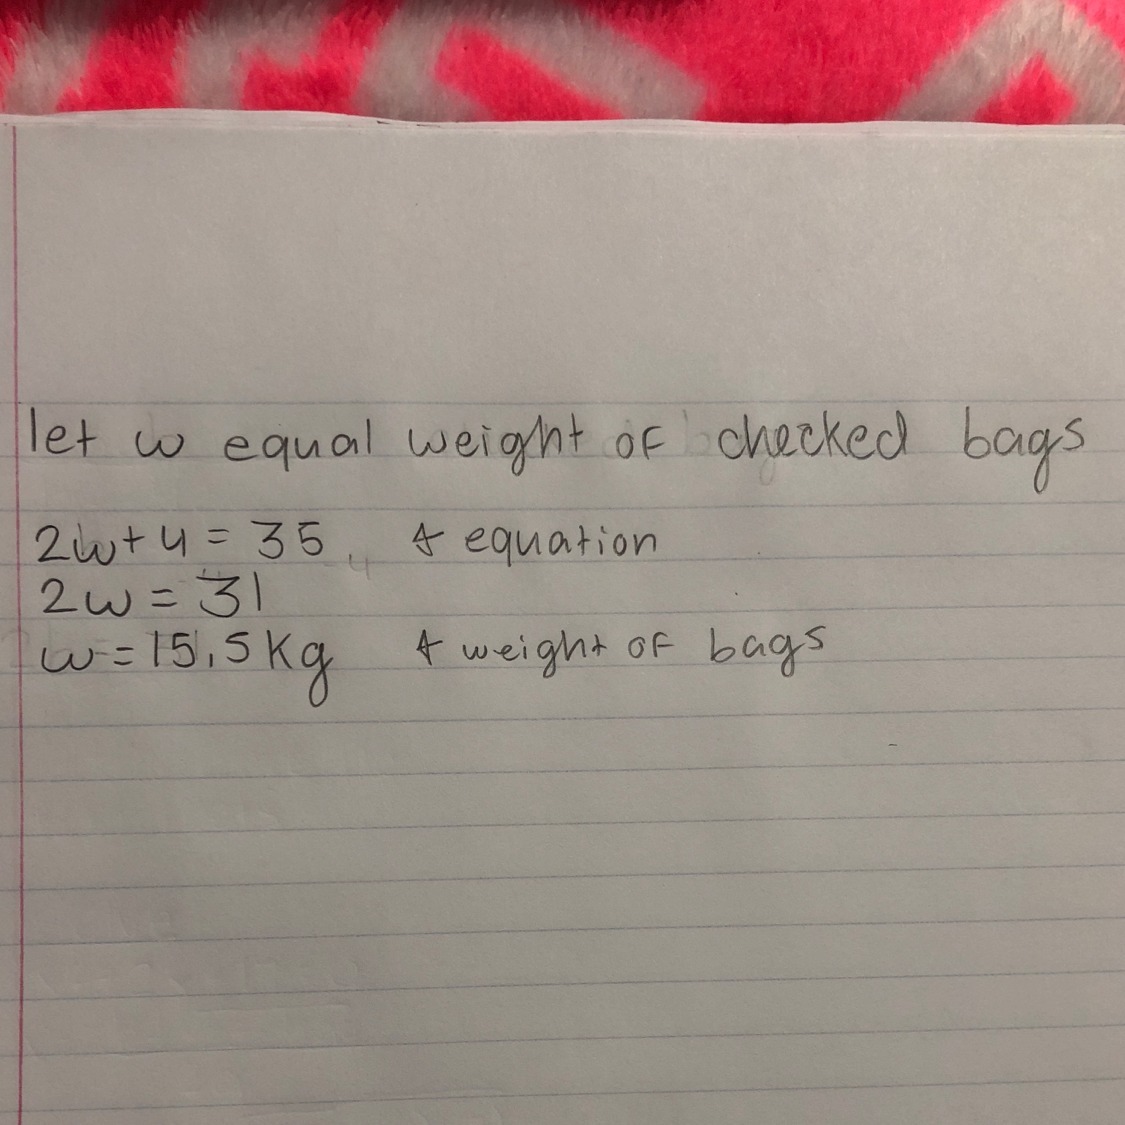 let w equal weight of checked bags
2w+4 = 35 ← equation
2w = 31
w = 15.5 kg ← weight of bags